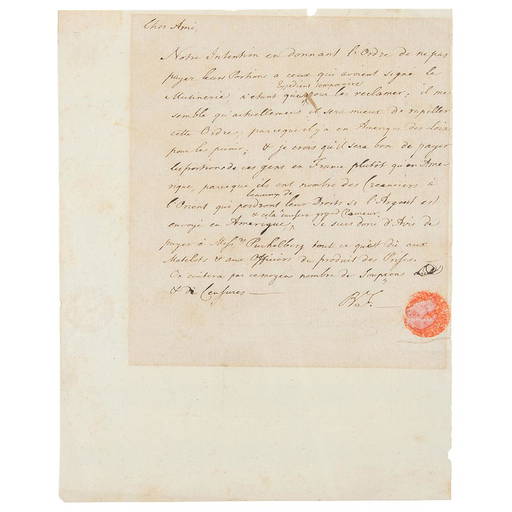 Cher Ami,
Notre Intention en donnant l'Ordre de ne pas
payer leurs Portions a ceux qui avoient signé la
Expedient temporaire
Mutinerie, n'étant que pour les reclamer; il me
semble qu'actuellement il sera mieux de rapeller
cette Ordre, parceque il y a en Amerique des Loix
pour les punir, & je crois qu'il sera bon de payer
les portions de ces gens en France plutôt qu'en Ame-
rique, parceque ils ont nombre des Creanciers à
beaucoup de
l'Orient qui perdront leur Droits si l'Argent est
& cela causera grand Clameur
envoyé en Amerique, Je suis donc d'Avis de
payer à Mess.rs Puchelberg tout ce qu'est dû aux
Matelots & aux Officiers du produit des Prises.
On evitera par ce moyen nombre de
& de Censures
B. F.